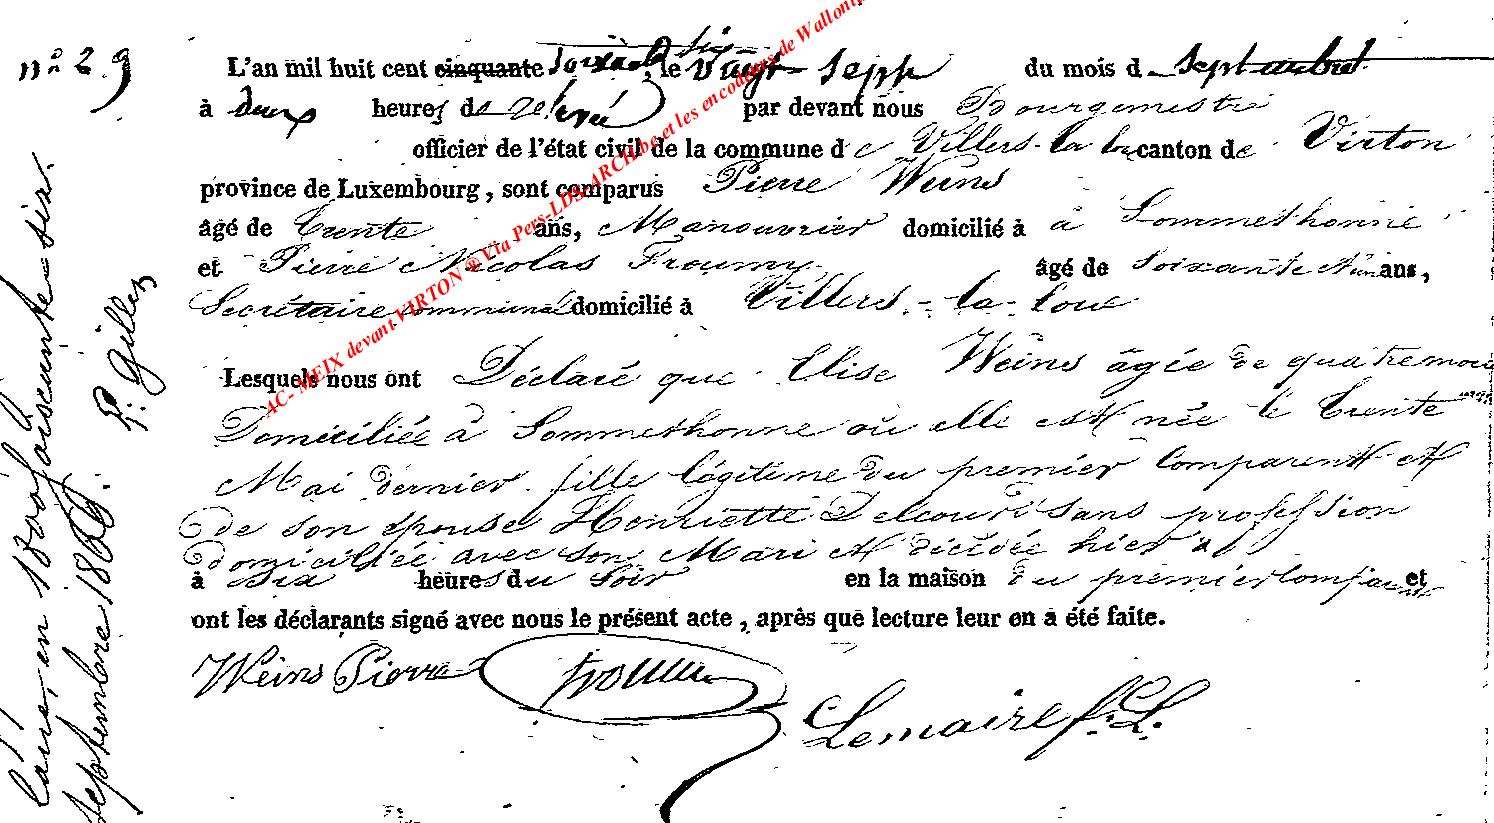 n° 29
L'an mil huit cent cinquante soixante six, le vingt-sept du mois de septembre
à deux heures de relevée par devant nous Bourgmestre
officier de l'état civil de la commune de Villers-la-loue canton de Virton
province de Luxembourg, sont comparus Pierre Weins
âgé de trente ans, Manouvrier domicilié à à Sommethonne
et Pierre Nicolas Froumy âgé de soixante ans,
Secrétaire communal domicilié à Villers-la-loue
Lesquels nous ont Déclaré que Elise Weins âgée de quatre mois
Domiciliée à Sommethonne où elle est née le trente
Mai dernier fille légitime du premier Comparant et
de son épouse Henriette Delcourt sans profession
domiciliée avec son Mari est décédée hier
à six heures du soir en la maison du premier comparant et
ont les déclarants signé avec nous le présent acte, après que lecture leur en a été faite.
Weins Pierre Froumy
Lemaire f. L.
septembre 1866. P. Gilles
AC- MEIX devant VIRTON ® Via Pers-LDS-ARCH.be et les encodeurs de Wallonie